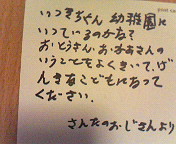 いつきちゃん 幼稚園に
いっているのかな?
おとうさん おかあさんの
いうことをよくきいて、げ
んきなこどもになって
ください.
さんたのおじさんより